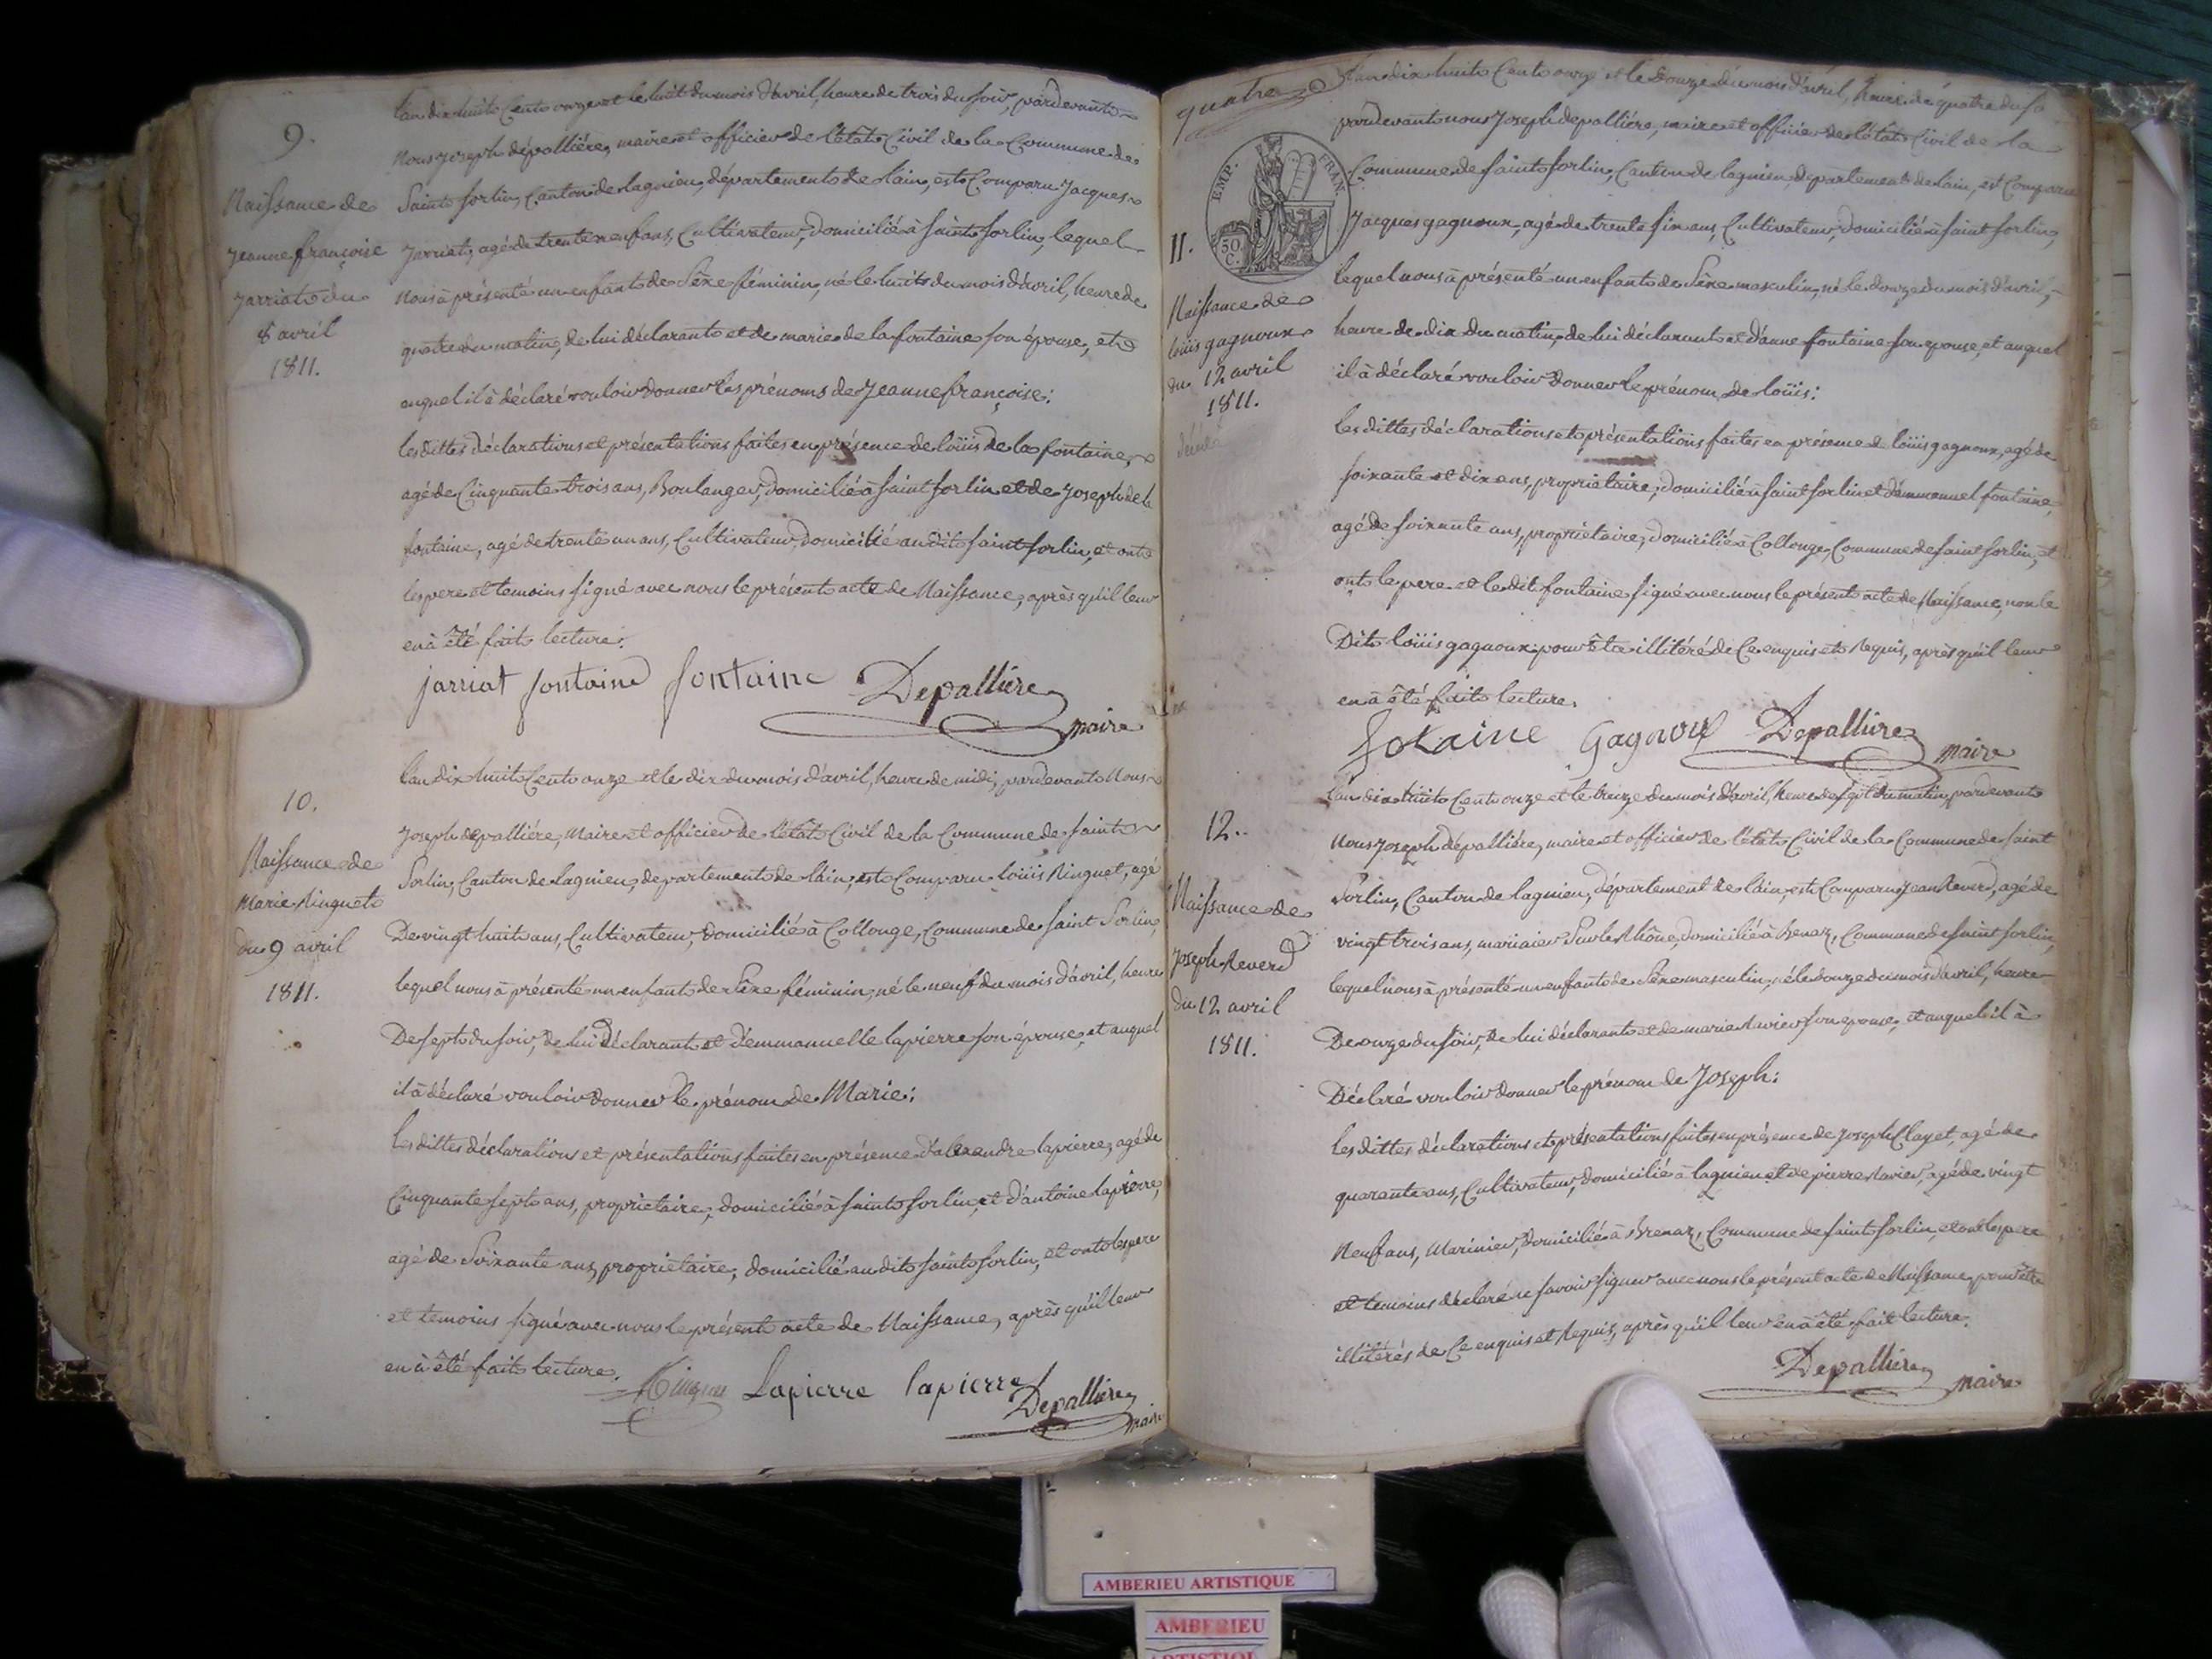 9.
Naissance de
Jeanne françoise
Jarriat du
8 avril
1811.
L'an dix huit cent onze et le huit du mois d'avril, heure de trois du soir, pardevant
Nous Joseph dépallière, maire et officier de l'état Civil de la Commune de
Saint Sorlin, Canton de lagnieu, département de l'ain, est Comparu Jacques
Jarriat, agé de trente neuf ans, Cultivateur, domicilié à Saint Sorlin, lequel
Nous à présenté un enfant de Sèxe féminin, né le huit du mois d'avril, heure de
quatre du matin, de lui déclarant et de marie de la fontaine son épouse, et
auquel il à déclaré vouloir donner les prénoms de Jeanne françoise:
les dittes déclarations et présentations faites en présence de loüis de la fontaine,
agé de Cinquante trois ans, Boulanger, domicilié à Saint Sorlin et de Joseph de la
fontaine, agé de trente un ans, Cultivateur, domicilié au dit Saint Sorlin, et ont
les pere et temoins signé avec nous le présent acte de Naissance, après qu'il leur
en à été fait lecture.
jarriat fontaine fontaine Depallière
maire
10.
Naissance de
Marie Ringuet
du 9 avril
1811.
L'an dix huit Cent onze et le dix du mois d'avril, heure de midi, pardevant Nous
Joseph depallière, Maire et officier de l'état Civil de la Commune de Saint
Sorlin, Canton de lagnieu, departement de l'ain, est Comparu loüis Ringuet, agé
De vingt huit ans, Cultivateur, domicilié à Collonge, Commune de Saint Sorlin,
lequel nous à présenté un enfant de Sèxe féminin, né le neuf du mois d'avril, heure
De sept du soir, de lui déclarant et d'emmanuelle lapierre son épouse, et auquel
il à déclaré vouloir donner le prénom de Marie:
les dittes déclarations et présentations faites en présence d'alexandre lapierre, agé de
Cinquante sept ans, propriétaire, domicilié à Saint Sorlin, et d'antoine lapierre,
agé de Soixante ans, propriétaire, domicilié au dit Saint Sorlin, et ont les pere
et temoins signé avec nous le présent acte de Naissance, après qu'il leur
en à été fait lecture.
Lapierre lapierre Depallière
maire
quatre
EMP. FRAN.
50 C.
11.
Naissance de
loüis gagnoux
du 12 avril
1811.
L'an dix huit Cent onze et le Douze du mois d'avril, heure de quatre du so
pardevant nous Joseph depallière, maire et officier de l'état Civil de la
Commune de Saint Sorlin, Canton de lagnieu, departement de l'ain, est Comparu
Jacques gagnoux, agé de trente six ans, Cultivateur, domicilié à Saint Sorlin,
lequel nous à présenté un enfant de Sèxe masculin, né le douze du mois d'avril,
heure de dix du matin, de lui déclarant et d'anne fontaine son epouse, et auquel
il à déclaré vouloir donner le prénom de loüis:
les dittes déclarations et présentations faites en présence de loüis gagnoux, agé de
soixante et dix ans, propriétaire, domicilié à Saint Sorlin et d'emmanuel fontaine,
agé de soixante ans, propriétaire, domicilié à Collonge, Commune de Saint Sorlin, et
ont le pere et le dit fontaine signé avec nous le présent acte de Naissance, non le
Dit loüis gagnoux pour être illitéré de Ce enquis et Requis, après qu'il leur
en à été fait lecture.
fotaine Gagnoux Depallière
maire
12.
Naissance de
Joseph Reverd
du 12 avril
1811.
L'an dix huit Cent onze et le treize du mois d'avril, heure de sept du matin, pardevant
Nous Joseph dépallière, maire et officier de l'état Civil de la Commune de Saint
Sorlin, Canton de lagnieu, département de l'ain, est Comparu Jean Reverd, agé de
vingt trois ans, marinier Sur le Rhône, domicilié à Brenaz, Commune de Saint Sorlin,
lequel nous à présenté un enfant de Sèxe masculin, né le douze du mois d'avril, heure
De onze du soir, de lui déclarant et de marie Ravier son epouse, et auquel il à
Déclaré vouloir donner le prénom de Joseph:
les dittes déclarations et présentations faites en présence de Joseph Clayet, agé de
quarante ans, Cultivateur, domicilié à lagnieu et de pierre Ravier, agé de vingt
Neuf ans, Marinier, domicilié à Brenaz, Commune de Saint Sorlin, et ont les pere
et temoins déclaré ne savoir signer avec nous le présent acte de Naissance, pour être
illitérés de Ce enquis et Requis, après qu'il leur en à été fait lecture.
Depallière
maire
AMBERIEU ARTISTIQUE
AMBERIEU
ARTISTIQUE